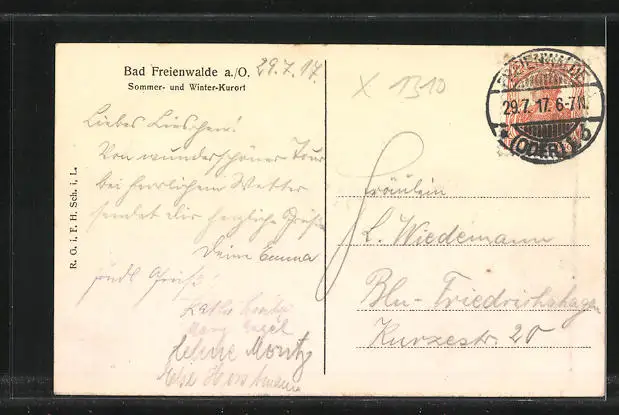 Bad Freienwalde a./O. 29.7.17.
Sommer- und Winter-Kurort
Liebes Lieschen!
Von wunderschöner Tour
bei herrlichem Wetter
sendet dir herzliche Grüße
Deine Emma
Mary Engel
Helene Moritz
R. G. i. F. H. Sch. i. L.
X 1310
FREIENWALDE
29.7.17. 6-7N.
(ODER)
Fräulein
L. Wiedemann
Bln-Friedrichshagen
Kurzestr. 20